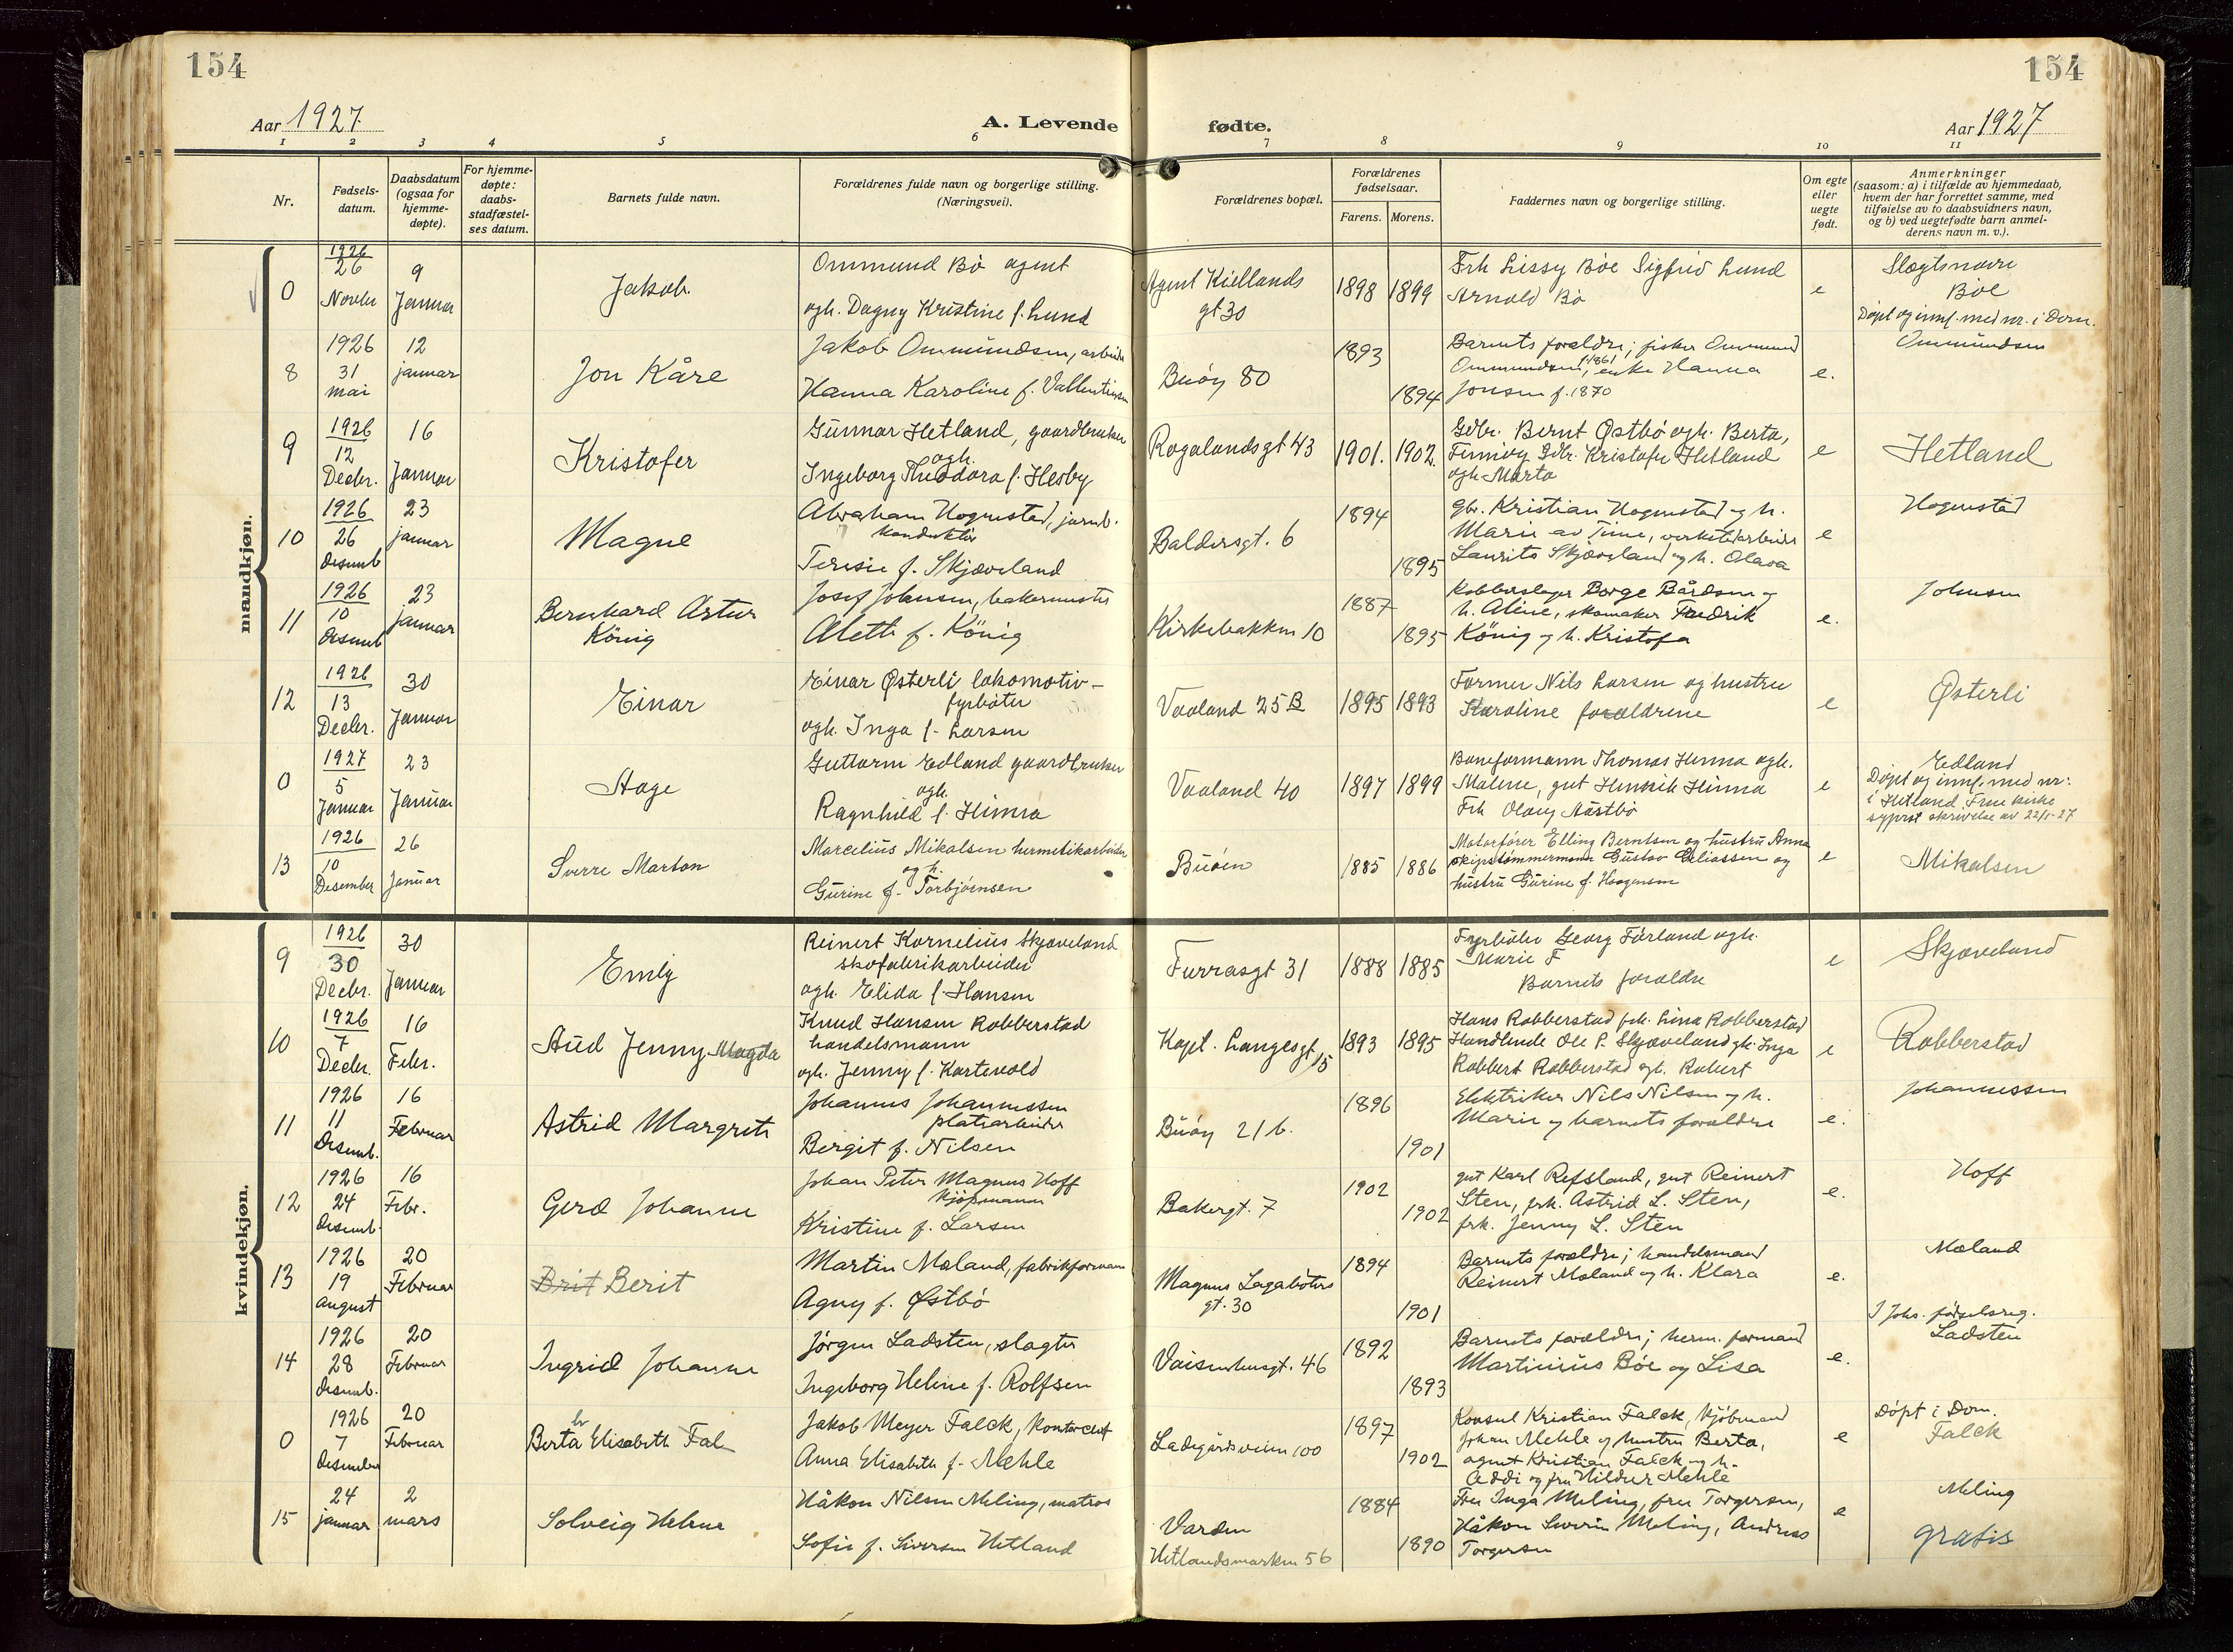 154
154
Aar 1927
A. Levende fødte.
Aar 1927
1 2 3 4 5 6 7 8 9 10 11
Nr.
Fødsels-
datum.
Daabsdatum
(ogsaa for
hjemme-
døpte).
For hjemme-
døpte:
daabs-
stadfæstel-
ses datum.
Barnets fulde navn.
Forældrenes fulde navn og borgerlige stilling.
(Næringsvei).
Forældrenes bopæl.
Forældrenes
fødselsaar.
Farens. Morens.
Faddernes navn og borgerlige stilling.
Om egte
eller
uegte
født.
Anmerkninger
(saasom: a) i tilfælde av hjemmedaab,
hvem der har forrettet samme, med
tilføielse av to daabsvidners navn,
og b) ved uegtefødte barn anmel-
derens navn m. v.).
mandkjøn.
0
1926
26
Novbr
9
Januar
Jakob
Ommund Bö agent
ogh. Dagny Kristine f. Lund
Agent Kiellands
gt 30
1898 1899
Frk Lissy Böe Sigfrid Lund
Arnold Bö
e
Slegtsnavn
Böe
Döpt og innf. med nr. i Dom.
8
1926
31
mai
12
januar
Jon Kåre
Jakob Ommundsen, arbeider
Hanna Karoline f. Vallentinsen
Buöy 80
1893
1894
Barnets forældre; fisker Ommund
Ommundsen f. 1861, enke Hanna
Jonsen f. 1870
e.
Ommundsen
9
1926
12
Decbr.
16
Januar
Kristofer
Gunnar Hetland, gaardbruker
ogh.
Ingeborg Theodora f. Hesby
Rogalandsgt 43
1901. 1902.
Gdbr. Bernt Östbö ogh. Berta,
Finnöy Gdbr. Kristofer Hetland
ogh Marta
e
Hetland
10
1926
26
Desemb
23
januar
Magne
Abraham Hognestad, jernb.
konduktör
Teresie f. Skjæveland
Baldersgt. 6
1894
1895
gbr. Kristian Hognestad og h.
Marie av Time, verkstedarbeider
Laurits Skjæveland og h. Olava
e
Hognestad
11
1926
10
Desemb
23
januar
Bernhard Artur
König
Josef Johnsen, bakermester
Aleth f. König
Kirkebakken 10
1887
1895
Kobberslager Børge Bårdsen og
h. Aline, skomaker Fredrik
König og h. Kristofa
e.
Johnsen
12
1926
13
Decbr.
30
Januar
Einar
Einar Østerli lokomotiv-
fyrböter
ogh. Inga f. Larsen
Vaaland 25 B
1895 1893
Former Nils Larsen og hustru
Karoline forældrene
e
Østerli
0
1927
5
Januar
23
Januar
Aage
Guttorm Edland gaardbruker
ogh.
Ragnhild f. Hinna
Vaaland 40
1897 1899
Baneformann Thomas Hinna ogh.
Malene, gut Henrik Hinna
Frk Olaug Aarstbö
e
Edland
Döpt og innf. med nr:
i Hetland Frue kirke
skrivelse av 22/1-27
13
1926
10
Desember
26
Januar
Sverre Marton
Marcelius Mikalsen hermetikarbeider
og h.
Gurine f. Torbjörnsen
Buöen
1885 1886
Motorfører Elling Berntsen og hustru Anna
skipstømmermann Gustav Eliassen og
hustru Gurine f. Haagensen
e
Mikalsen
kvindekjøn.
9
1926
30
Decbr.
30
Januar
Emly
Reinert Kornelius Skjæveland
skofabrikarbeider
ogh. Elida f. Hansen
Furrasgt 31
1888 1885
Fyrböter Georg Fårland ogh.
Marie F
Barnets forældre
e
Skjæveland
10
1926
7
Decbr.
16
Febr.
Aud Jenny Magda
Knud Hansen Robberstad
handelsmann
ogh. Jenny f. Kartevold
Kapt. Langesgt 15
1893 1895
Hans Robberstad frk. Lina Robberstad
Handlende Ole P. Skjæveland gh. Inga
Robbert Robberstad ogh. Robert
e
Robberstad
11
1926
11
Desemb.
16
Februar
Astrid Margrete
Johannes Johannessen
platearbeider
Bergit f. Nilsen
Buöy 21 b.
1896
1901
Elektriker Nils Nilsen og h.
Marie og barnets forældre
e.
Johannessen
12
1926
24
Desemb.
16
Febr.
Gerd Johanne
Johan Peter Magnus Hoff
kjöpmann
Kristine f. Larsen
Bakergt. 7
1902
1902
gut Karl Refsland, gut Reinert
Sten, frk. Astrid L. Sten,
frk. Jenny L. Sten
e.
Hoff
13
1926
19
august
20
Februar
Brit Berit
Martin Moland, fabrikformann
Agny f. Østbö
Magnus Lagaböters
gt. 30
1894
1901
Barnets forældre; handelsmand
Reinert Moland og h. Klara
e.
Moland
I Johs. fødselsreg.
14
1926
28
Desemb.
20
Februar
Ingrid Johanne
Jörgen Ladsten, slagter
Ingeborg Helene f. Rolfsen
Vaisenhusgt. 46
1892
1893
Barnets forældre; herm. formand
Martinius Böe og Lisa
e.
Ladsten
0
1926
7
Desember
20
Februar
Berta Elisabeth Fal
Jakob Meyer Falck, kontorchef
Anna Elisabeth f. Mehle
Ladegårdsveien 100
1897
1902
Konsul Kristian Falck, kjöbmand
Johan Mehle og hustru Berta,
agent Kristian Falck og h.
Addi og fru Hildur Mehle
e
Döpt i Dom.
Falck
15
24
januar
2
mars
Solveig Helene
Håkon Nilsen Meling, matros
Sofie f. Siversen Hetland
Varden
Hetlandsmarken 56
1884
1890
Fru Inga Meling, fru Torgersen,
Håkon Severin Meling, Andreas
Torgersen
e
Meling
gratis